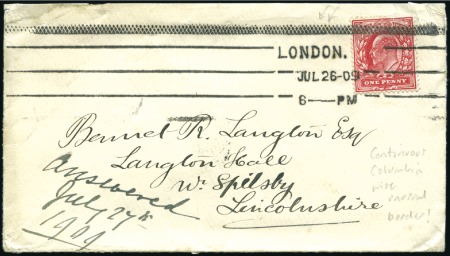 LONDON.
JUL 26-09
6 — PM
ONE PENNY
Bennet R. Langton Esq
Langton Hall
Wr. Spilsby
Lincolnshire
answered
July 27th
1909
Continuous
Columbia
wire
unusual
border!